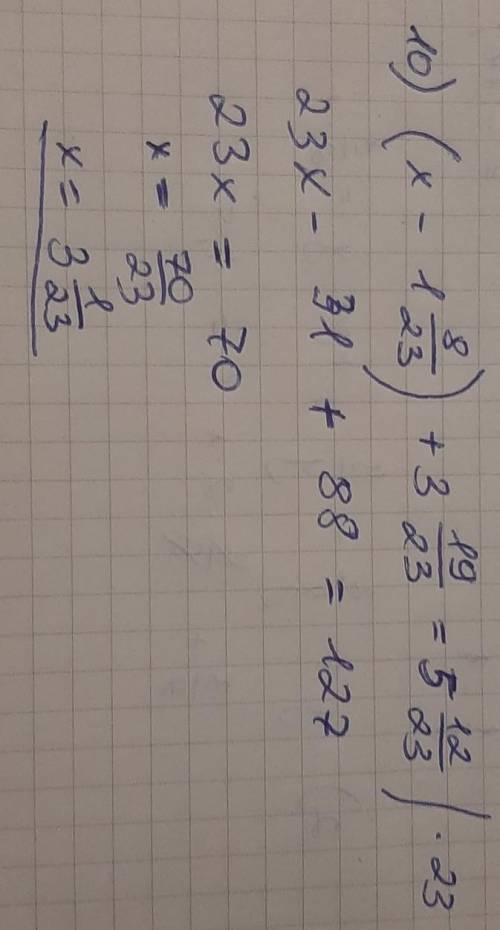 10) (x - 1 8/23) + 3 19/23 = 5 12/23 / · 23
23x - 31 + 88 = 127
23x = 70
x = 70/23
x = 3 1/23